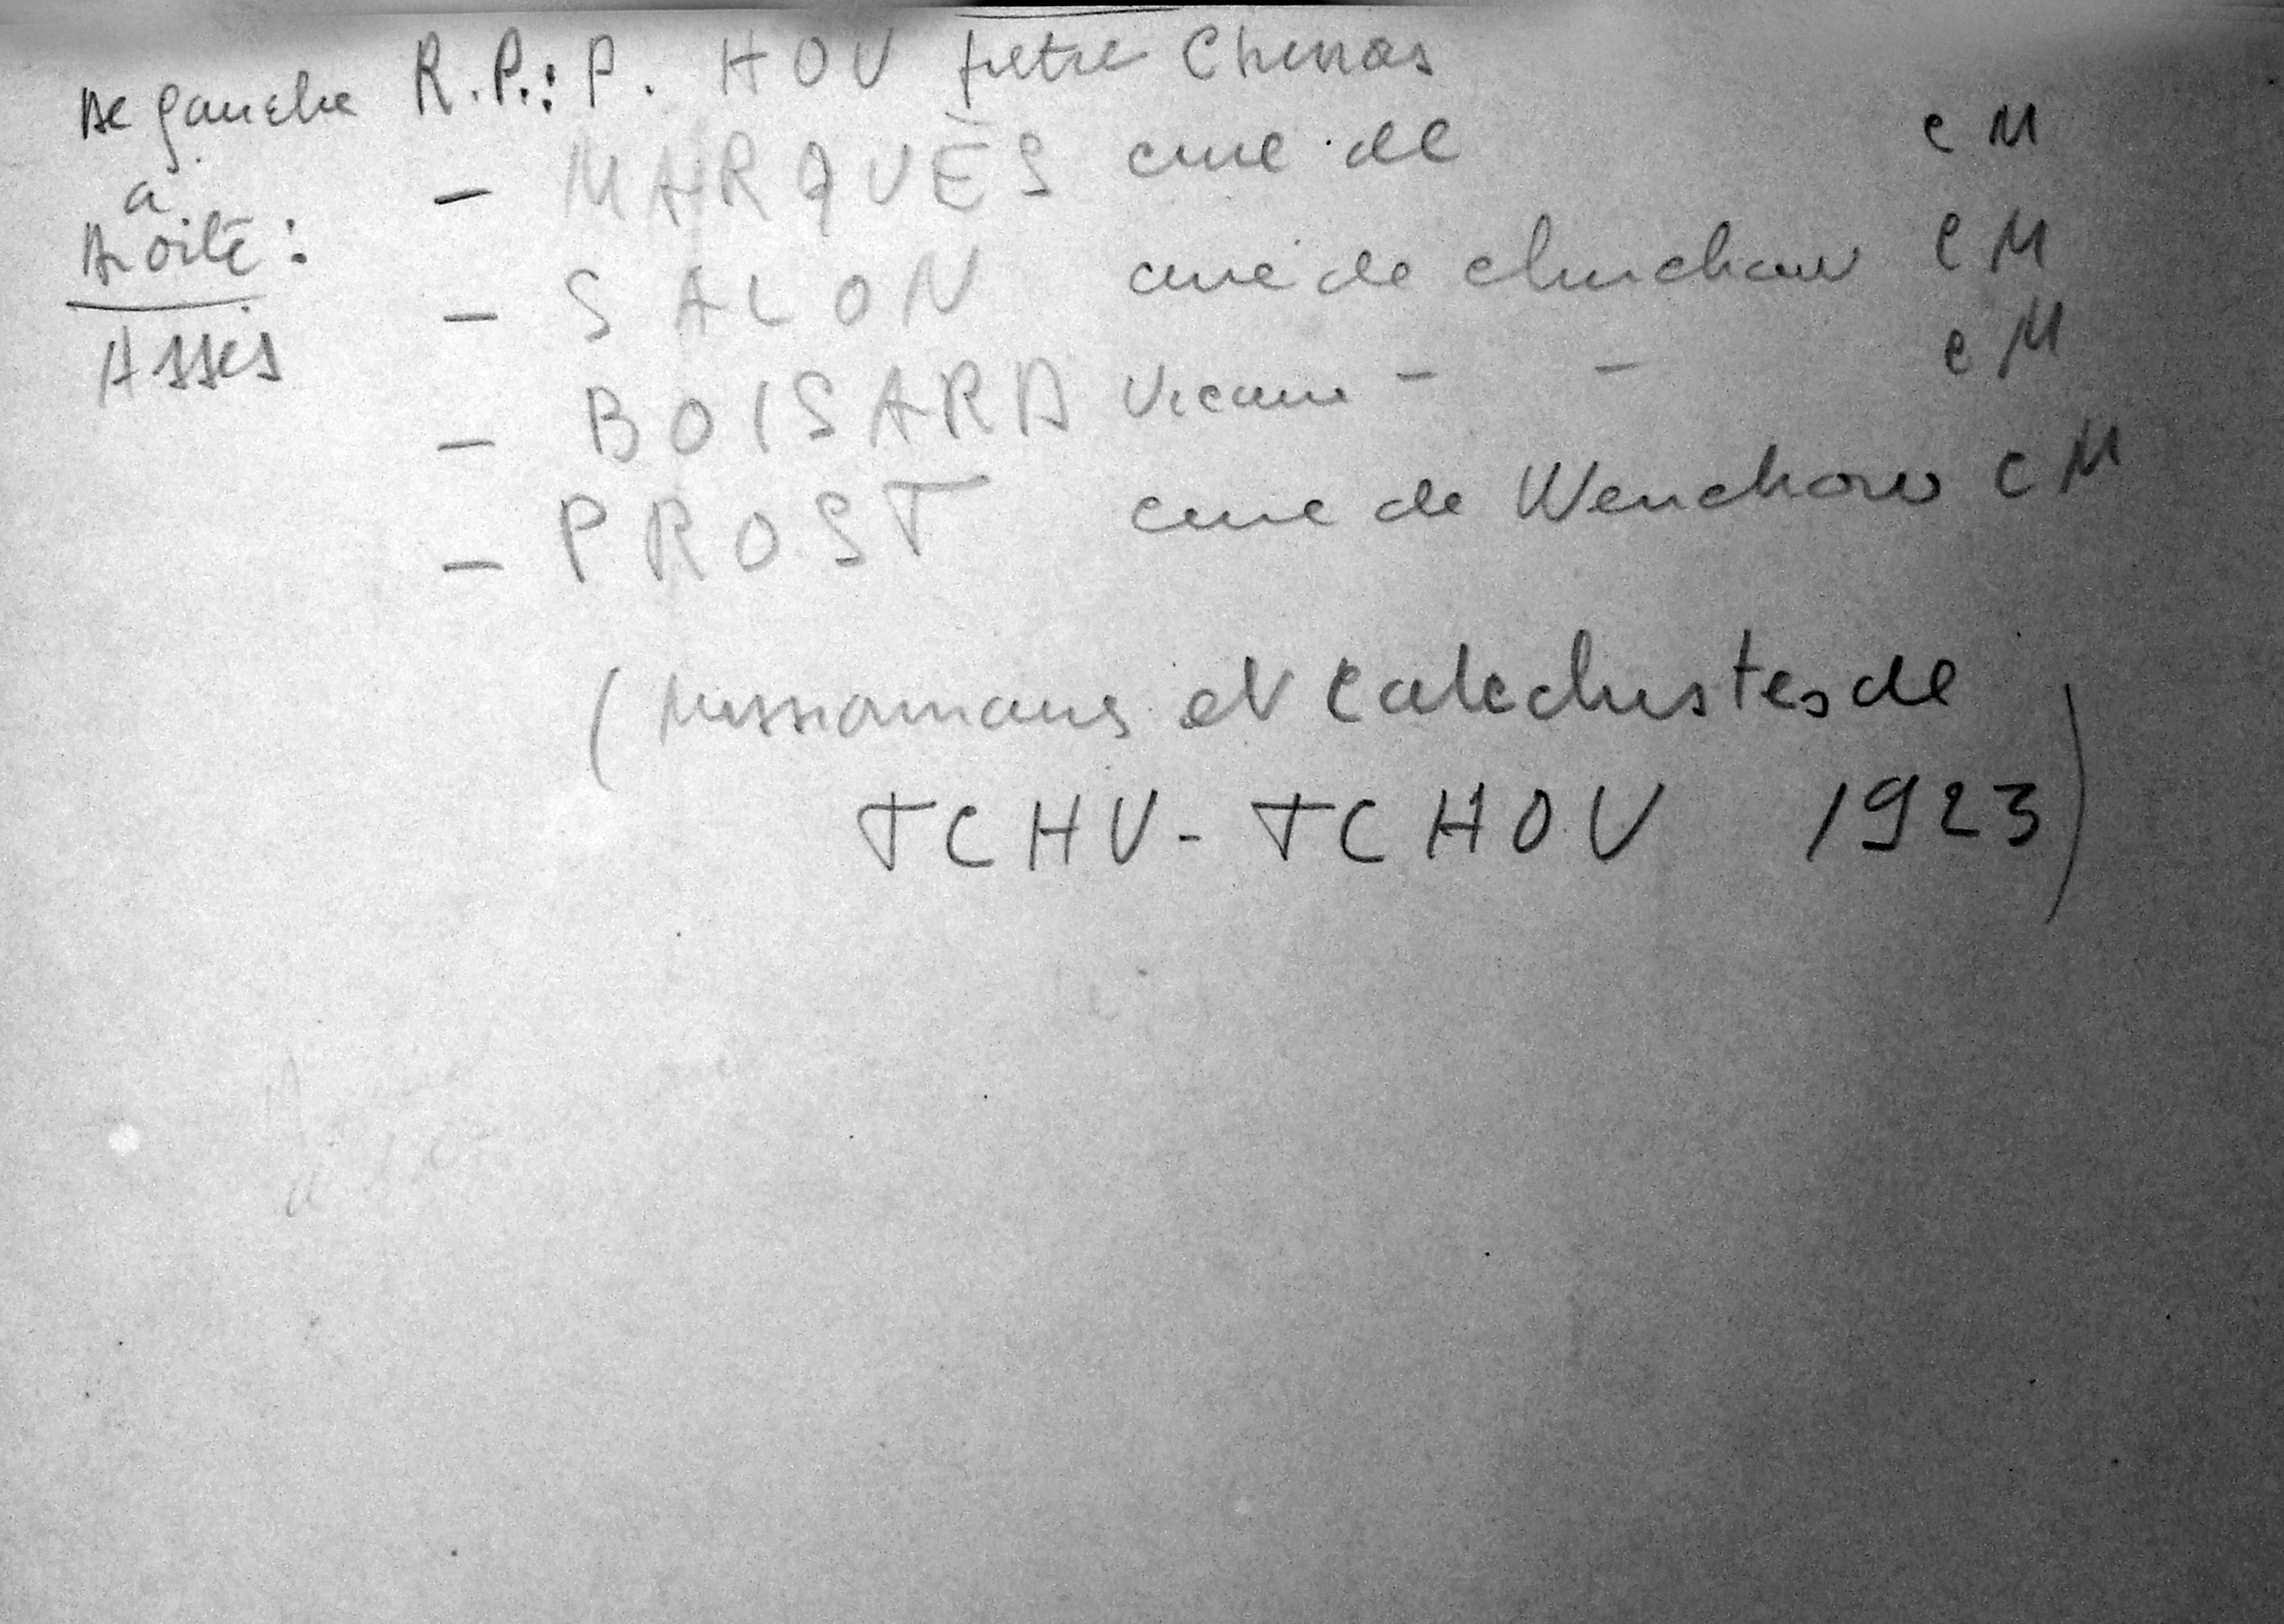 De gauche R.P.: P. HOU prêtre Chinois
à - MARQUÈS curé de CM
Droite: - SALON curé de chuchow CM
Assis - BOISARD Vicaire - - CM
- PROST curé de Wenchow CM
(Missionnaires et Catechistes de
TCHU-TCHOU 1923)